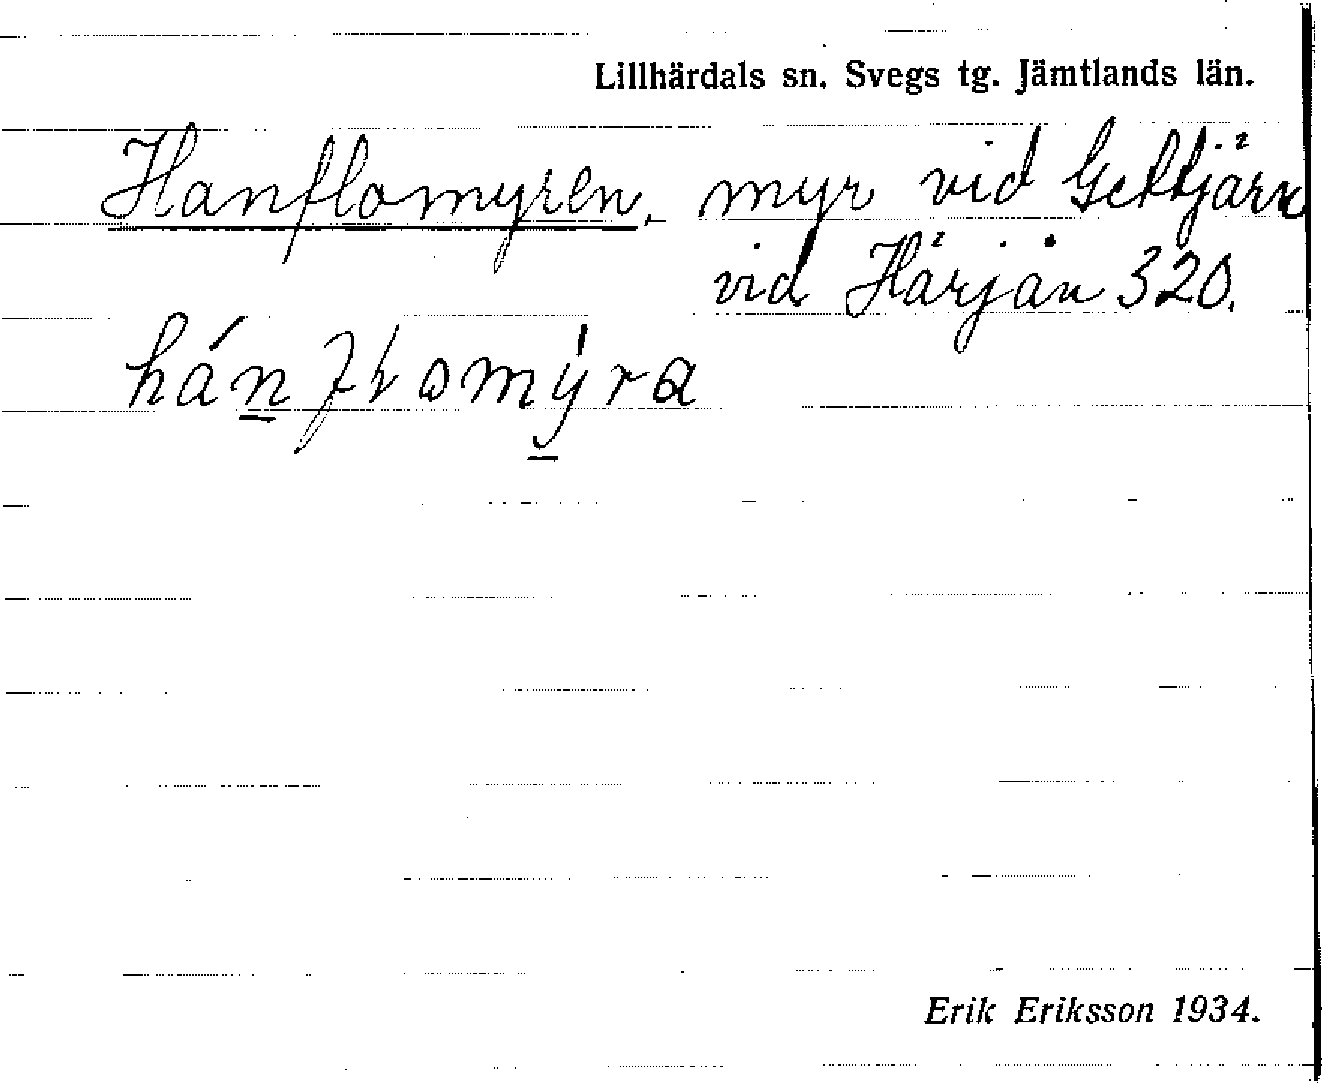 Lillhärdals sn. Svegs tg. Jämtlands län.
Hanflomyren, myr vid Gettjärn
vid Härjån 320.
hánflomýra
Erik Eriksson 1934.